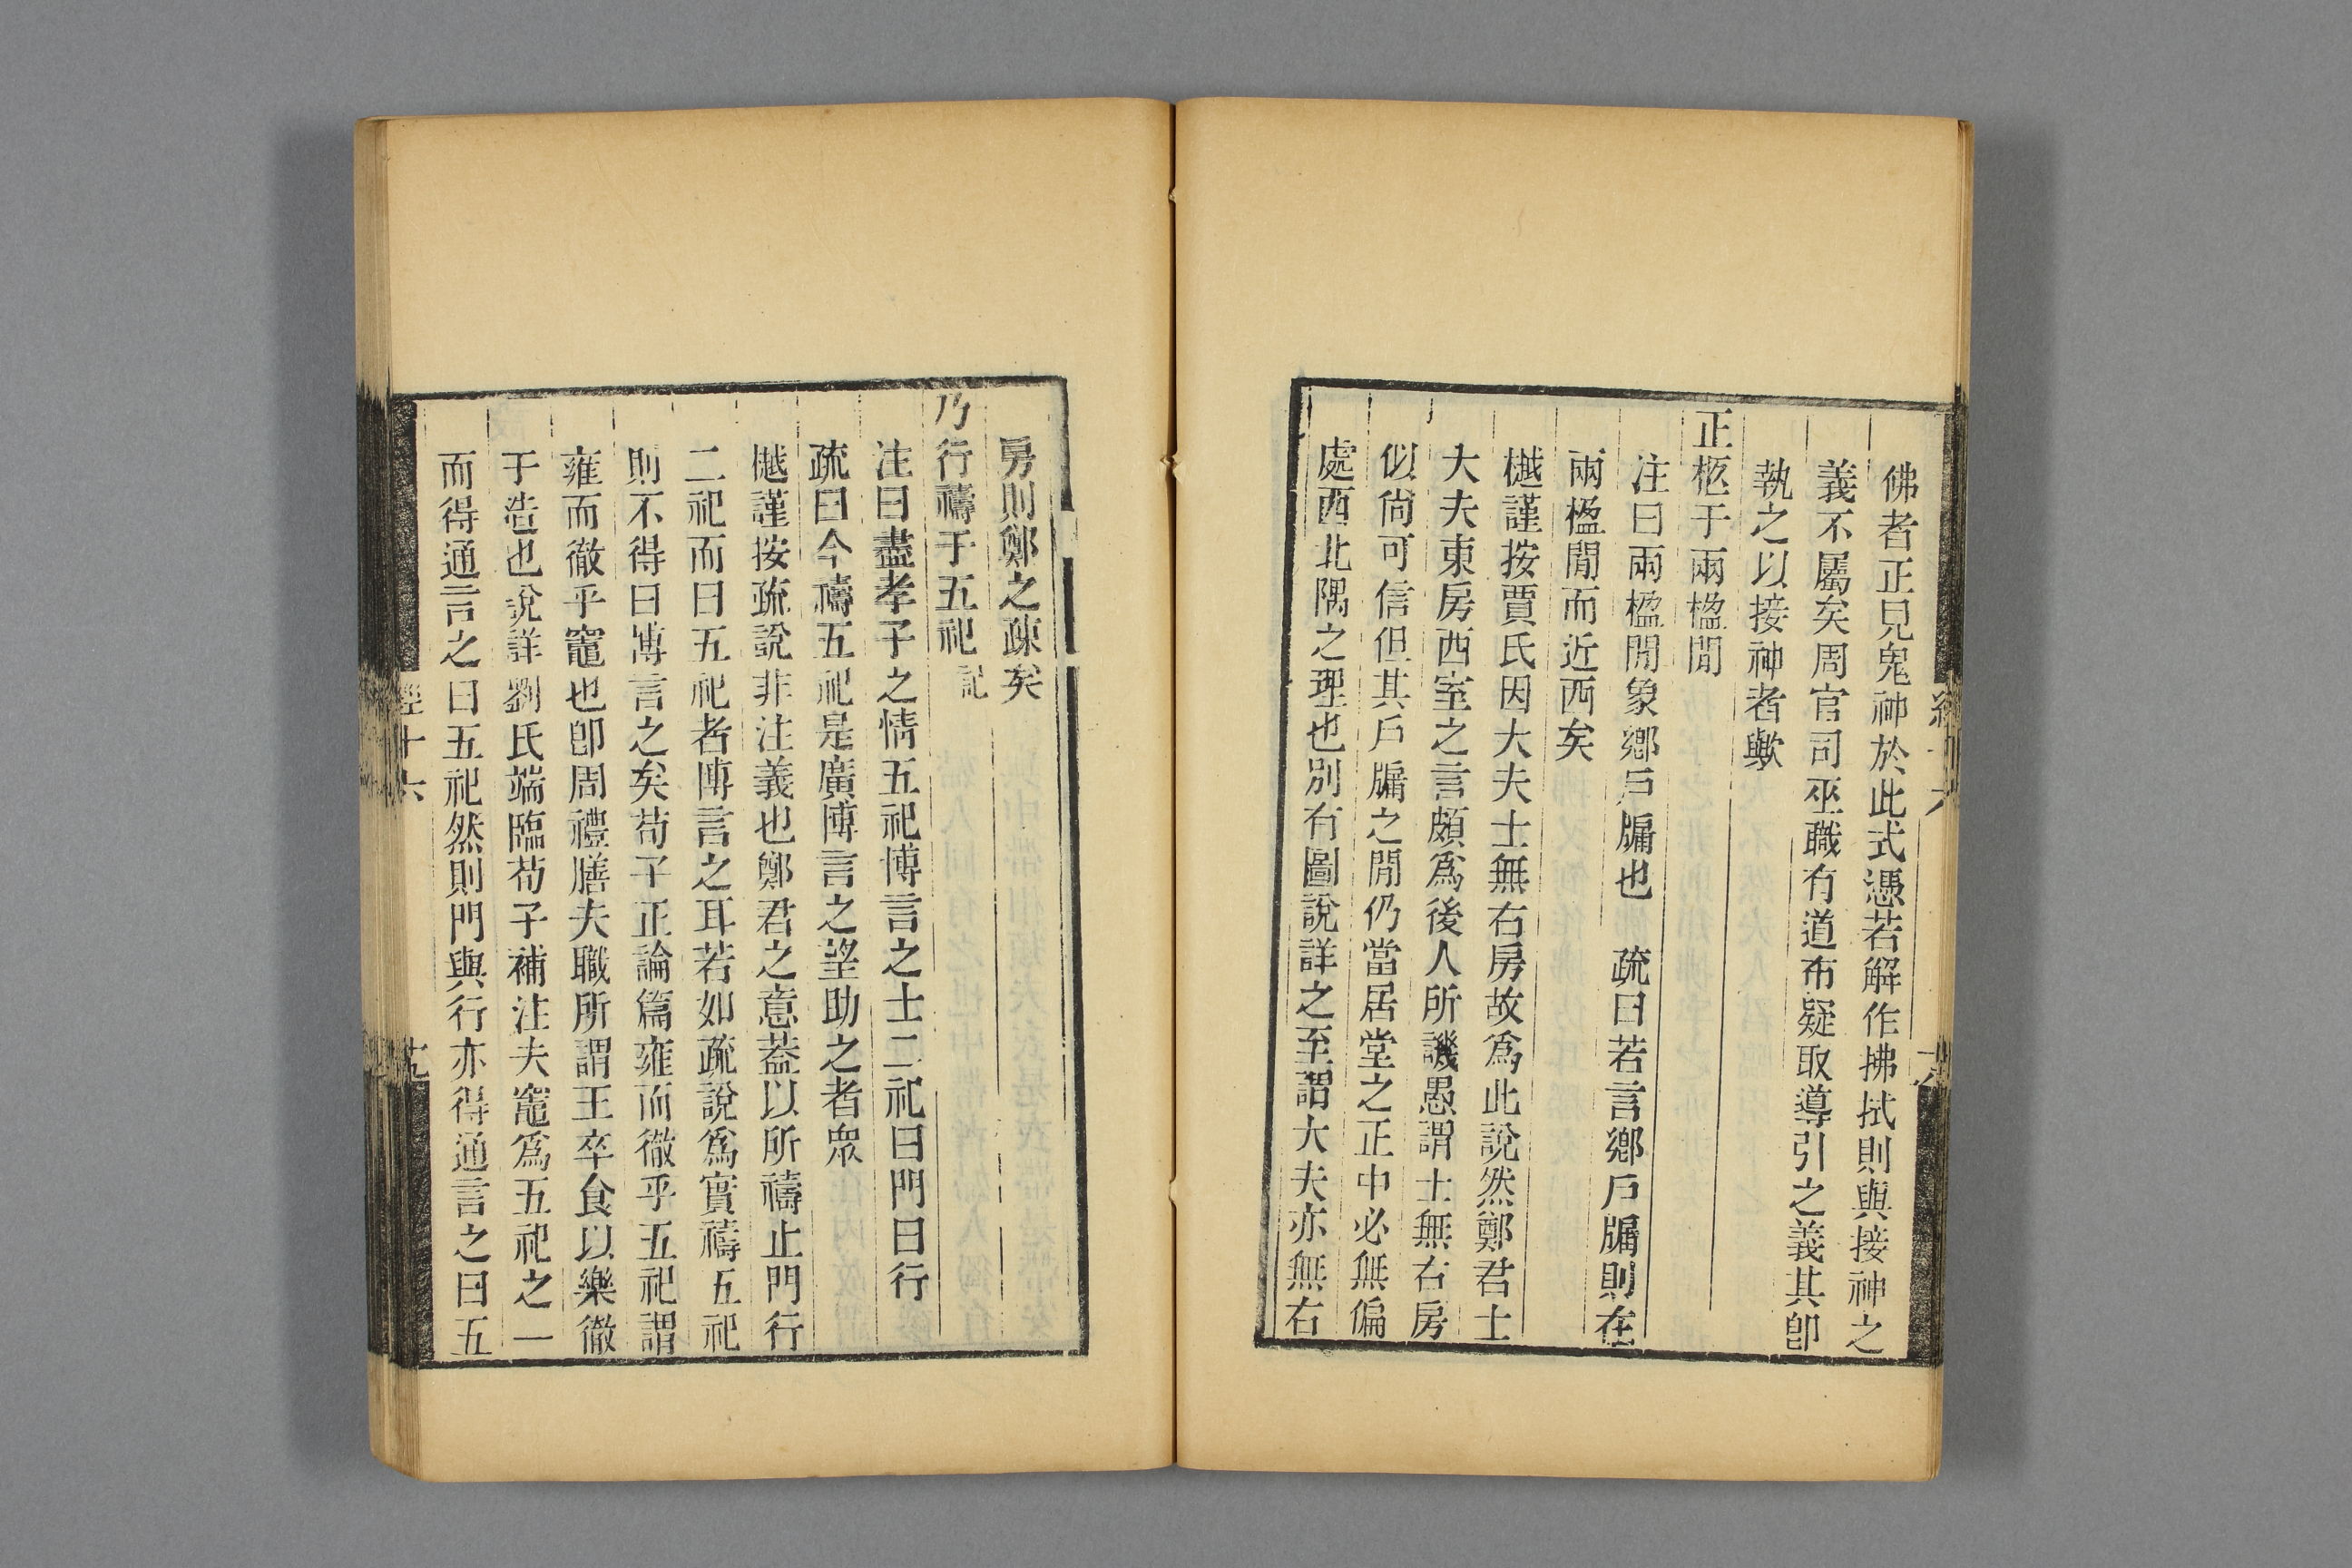 佛者正見鬼神於此式憑若解作拂拭則與接神之
義不屬矣周官司巫職有道布疑取導引之義其卽
執之以接神者歟
正柩于兩楹閒
注曰兩楹閒象鄉戶牖也　疏曰若言鄉戶牖則在
兩楹閒而近西矣
樾謹按賈氏因大夫士無右房故爲此說然鄭君士
大夫東房西室之言頗爲後人所譏愚謂士無右房
似尙可信但其戶牖之閒仍當居堂之正中必無偏
處西北隅之理也別有圖說詳之至謂大夫亦無右
房則鄭之疎矣
乃行禱于五祀記
注曰盡孝子之情五祀博言之士二祀曰門曰行
疏曰今禱五祀是廣博言之望助之者衆
樾謹按疏說非注義也鄭君之意葢以所禱止門行
二祀而曰五祀者博言之耳若如疏說爲實禱五祀
則不得曰博言之矣荀子正論篇雍而徹乎五祀謂
雍而徹乎竈也卽周禮膳夫職所謂王卒食以樂徹
于造也說詳劉氏端臨荀子補注夫竈爲五祀之一
而得通言之曰五祀然則門與行亦得通言之曰五
經十六